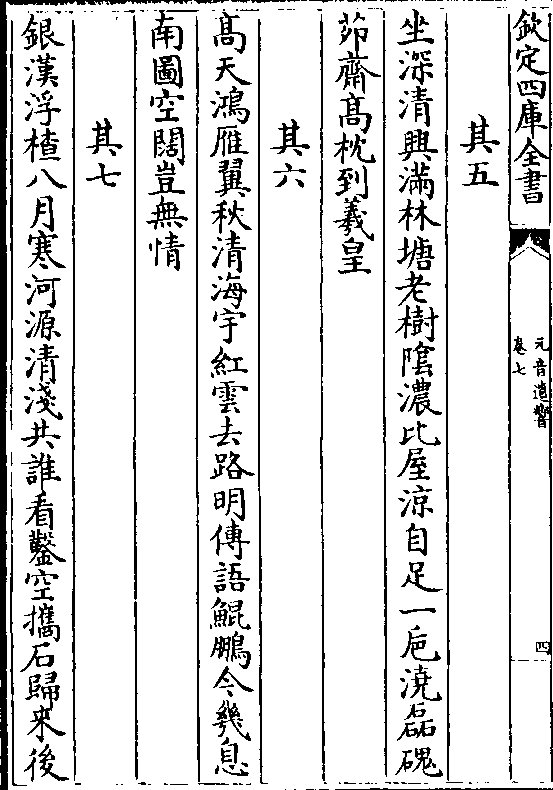 欽定四庫全書
元音遺響
卷七
四
其五
坐深清興滿林塘老樹隂濃比屋涼自足一巵澆磊磈
茆齋髙枕到羲皇
其六
髙天鴻雁翼秋清海宇紅雲去路明傳語鯤鵬今幾息
南圖空闊豈無情
其七
銀漢浮楂八月寒河源清淺共誰看鑿空擕石歸來後